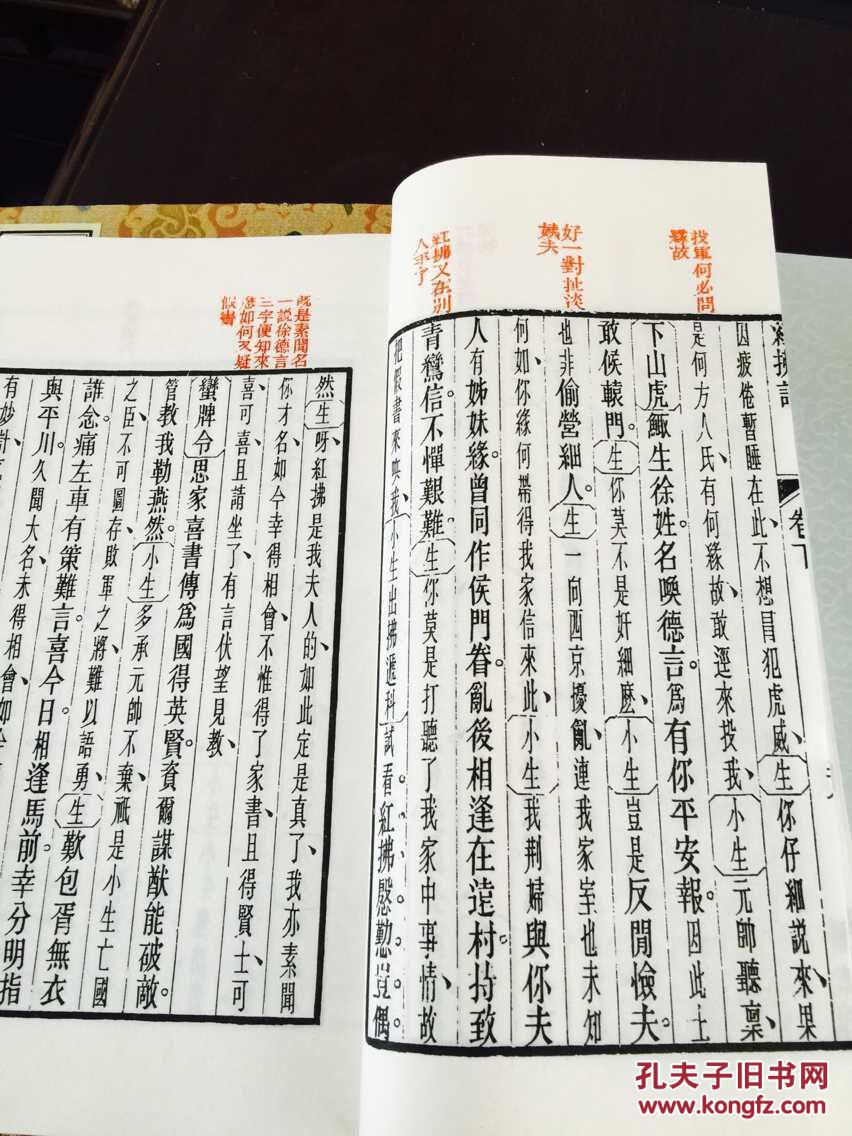 紅拂記 卷下
投軍何必問
緣故
好一對扯淡
姨夫
紅拂又在別
人手了
因疲倦暫睡在此、不想冒犯虎威、生你仔細說來、果
是何方人氏有何緣故、敢逕來投我、小生元帥聽稟、
下山虎鯫生徐姓名喚德言。爲有你平安報。因此上
敢候轅門。生你莫不是奸細麽、小生豈是反間憸夫。
也非偷營細人。生一向西京擾亂、連我家室也未知
何如你緣何帶得我家信來此、小生我荆婦與你夫
人有姊妹緣曾同作侯門眷。亂後相逢在遠村持致
青鸞信不憚艱難生你莫是打聽了我家中事情、故
把假書來哄我、小生出拂遞科試看。紅拂慇懃豈偶。
既是素聞名
一說徐德言
三字便知來
意如何又疑
假書
然生呀紅拂是我夫人的、如此定是真了、我亦素聞
你才名如今幸得相會、不惟得了家書、且得賢士、可
喜可喜且請坐了有言伏望見教、
蠻牌令思家喜書傳爲國得英賢。賚爾謀猷能破敵。
管教我勒燕然。小生多承元帥不棄祗是小生亡國
之臣不可圖存敗軍之將、難以語勇、生歎包胥無衣
誰念痛左車有策難言。喜今日相逢馬前。幸分明指
與平川。久聞大名未得相會如
有妙
孔夫子旧书网
www.kongfz.com